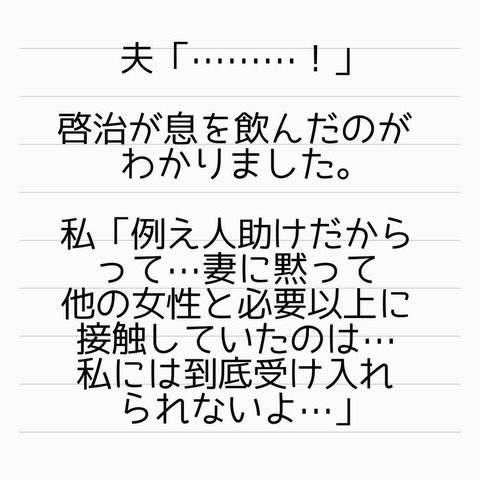 夫「………！」
啓治が息を飲んだのが
わかりました。
私「例え人助けだから
って…妻に黙って
他の女性と必要以上に
接触していたのは…
私には到底受け入れ
られないよ…」